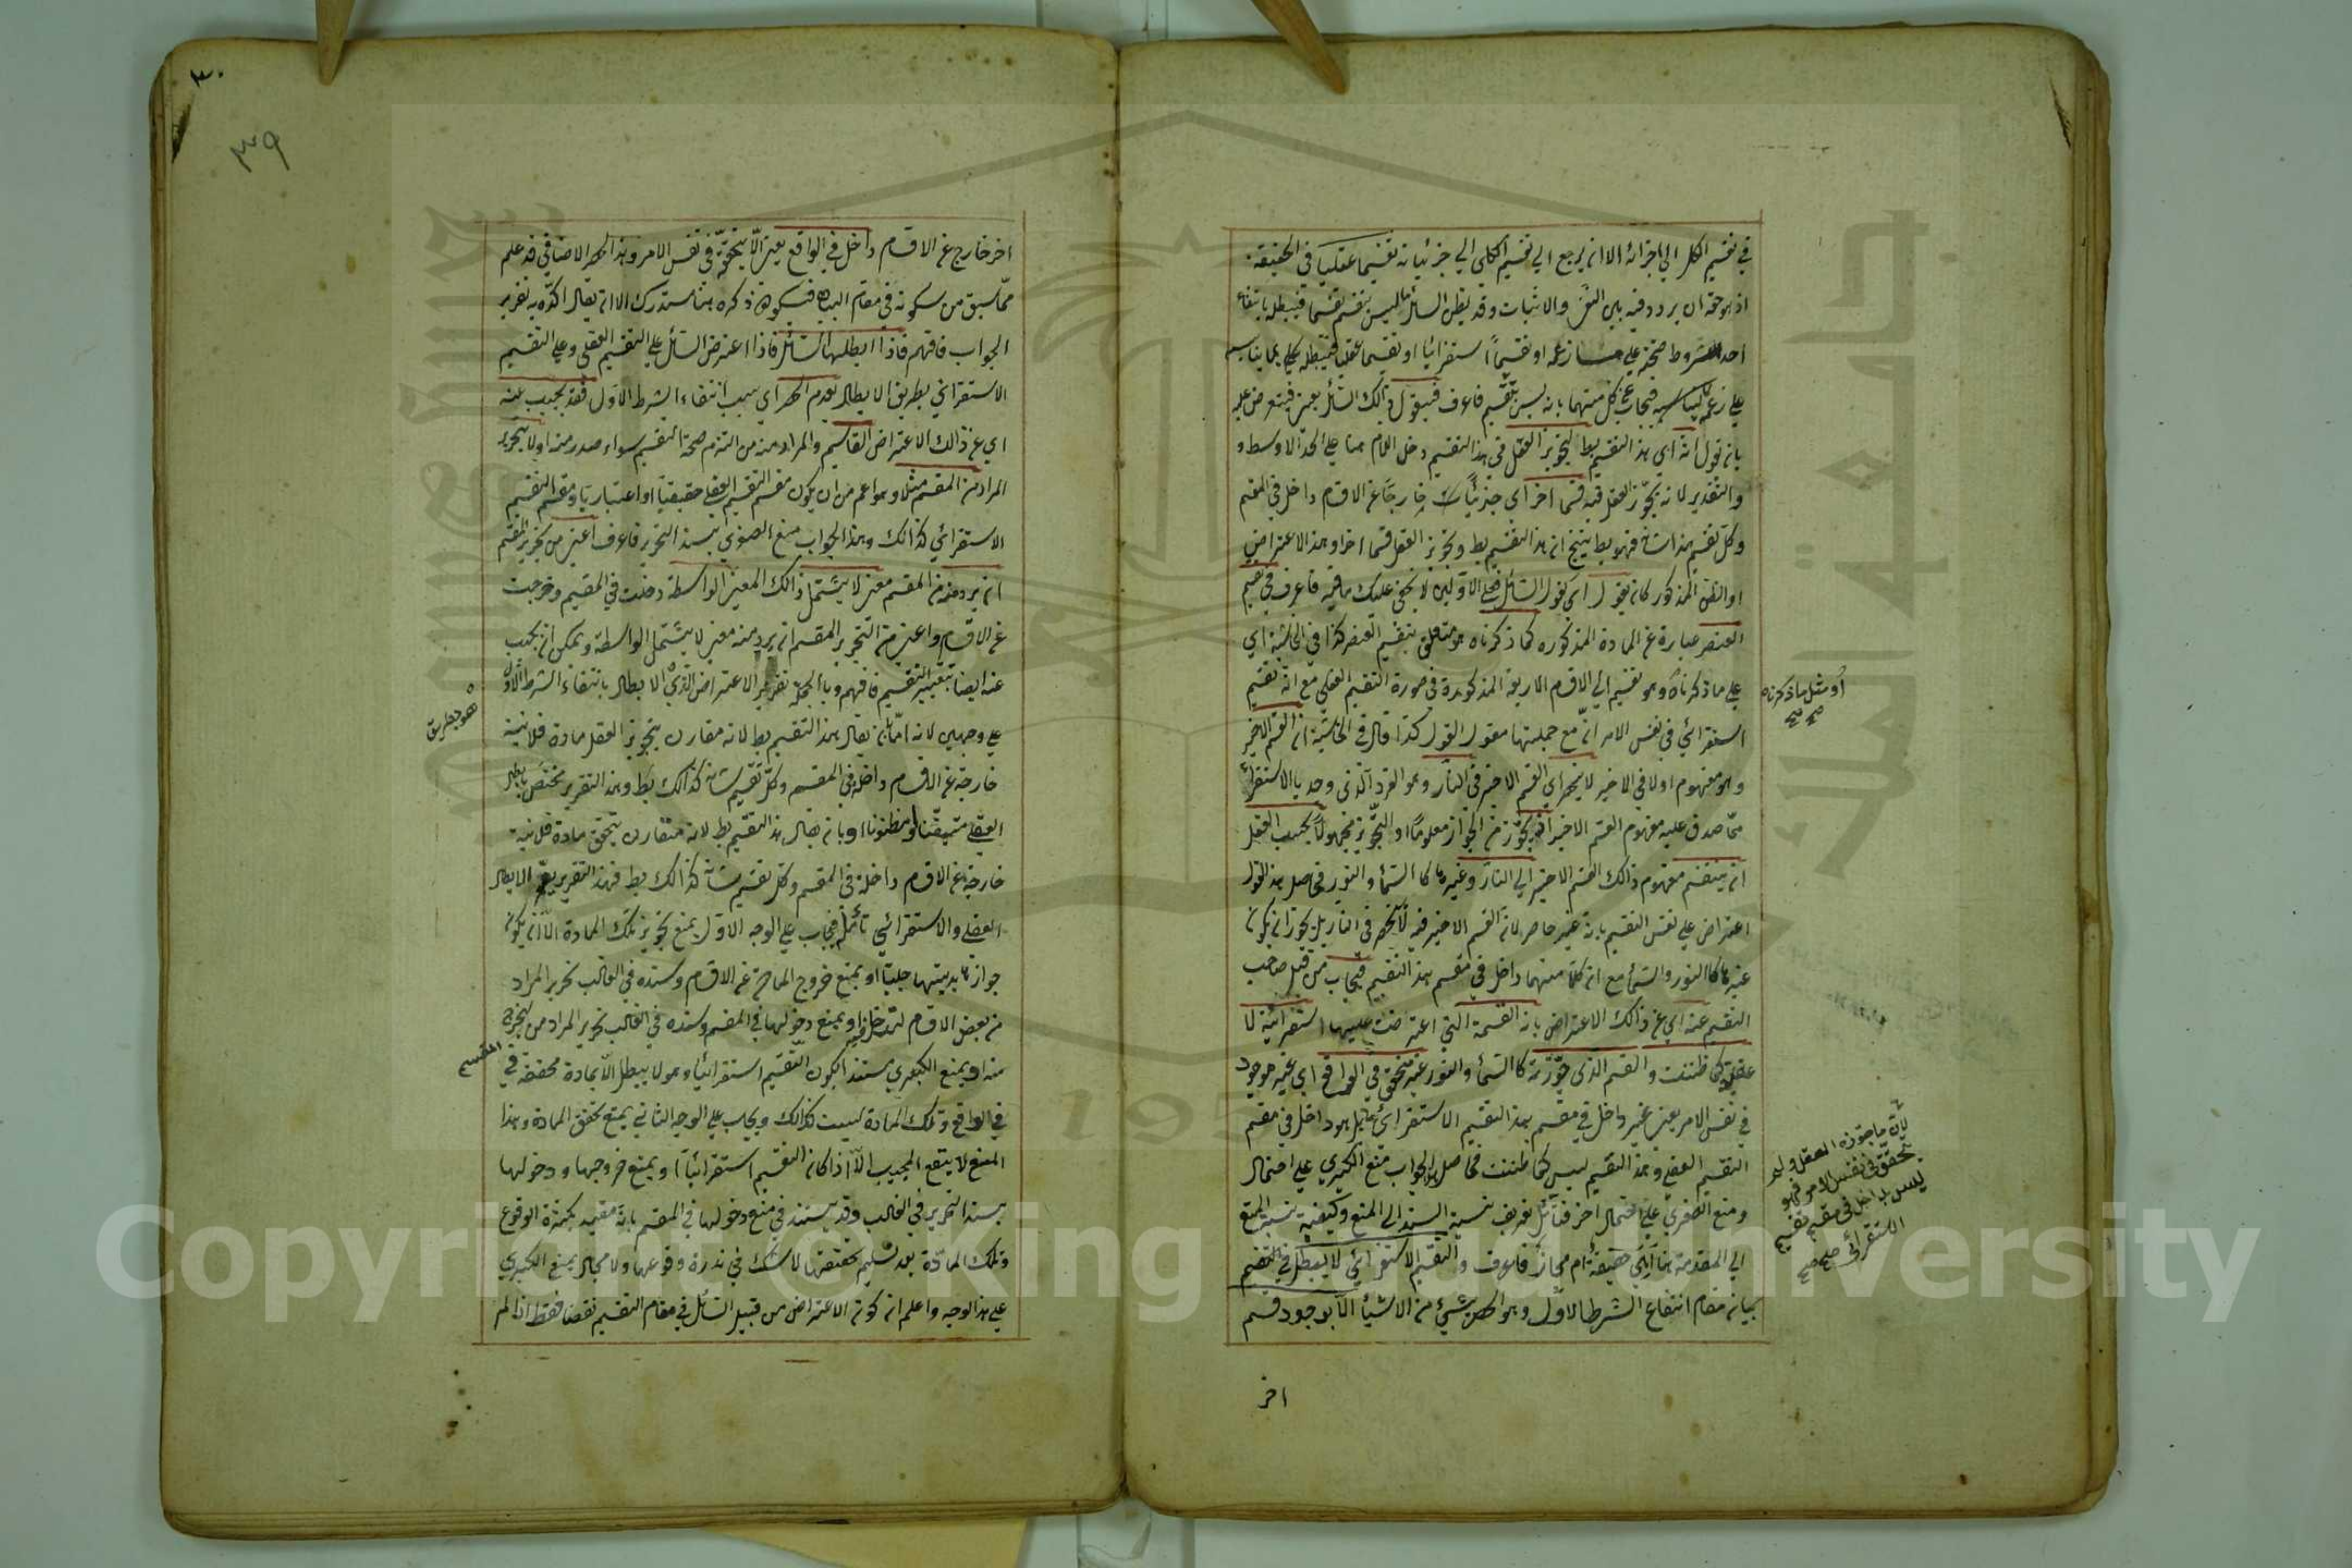 في تقسيم الكل الي اجزائه الا ان يرجع الي تقسيم الكلي الي جزئياته تقسيما عقليا في الحقيقة
اذ هو حقه ان يردد فيه بين النفي والاثبات وقد يظن السائل ما ليس بتقسيم تقسيما فيبطله بانتفاء
احد شروط صحته علي زعمه او تقسيما استقرائيا او تقسيما عقليا فيبطله علي ما يناسبه
علي زعمه فيجاب عن كل منهما بانه ليس بتقسيم فاعرف فيقول ذالك السائل يعني فيتعرض عليه
بان تقول انه اي هذا التقسيم بط لتجويز العقل في هذا التقسيم دخل اللام هنا علي الحد الاوسط و
والتقدير لانه يجوز العقل فيه قسما اخر اي جزئيا خارجا عن الاقسام داخل في المقسم
وكل تقسيم هذا شانه فهو بط ينتج ان هذا التقسيم بط وتجويز العقل قسما اخر وهذا الاعتراض
او النقض المذكور كان يقول اي كقول السائل الاولين لا يخفي عليك ما فيه فاعرف في تقسيم
العنصر عبارة عن المادة المذكوره كما ذكرناه هو متعلق بتقسيم العنصر كذا في الحاشية اي
علي ما ذكرناه وهو تقسيم الي الاقسام الاربعة المذكورة في صورة التقسيم العقلي مع انه تقسيم
استقرائي في نفس الامر انه مع جملتها مقول القول كذا قال في الحاشية ان القسم الاخير
وهو مفهوم اولا في الاخير لا ينحصر اي القسم الاخير في النار وهو الفرد الذي وجد بالاستقراء
مما صدق عليه مفهوم القسم الاخير اذ يجوز من الجواز معلوما او التجويز مجهولا بحسب العقل
ان ينقسم مفهوم ذالك القسم الاخير الي النار وغيرها كالسماء والنور في حاصل هذا القول
اعتراض علي نفس التقسيم بانه غير حاصر لان القسم الاخير فيه لا ينحصر في النار بل يجوز ان يكون
غيرها كالنور والسماء مع ان كلا منهما داخل في مقسم هذا التقسيم فيجاب من قبل صاحب
التقسيم عنه اي عن ذالك الاعتراض بان القسمة التي اعترضت عليها استقرائية لا
عقلية كما ظننت والقسم الذي جوزته كالسماء والنور غير متحقق في الواقع اي غير موجود
في نفس الامر يعني غير داخل في مقسم هذا التقسيم الاستقرائي بل هو داخل في مقسم
التقسيم العقلي وهذا التقسيم ليس كما ظننت فحاصل الجواب منع الكبري علي احتمال
ومنع الصغري علي احتمال اخر فتأمل تعريف نسبة السند الي المنع وكيفية نسبة المنع
الي المقدمة هنا حقيقة ام مجاز فاعرف والتقسيم الاستقرائي لا يبطل في التقسيم
بيان مقام انتفاء الشرط الاول وهو الحصر بشيء من الاشياء الا بوجود قسم
اخر
أو مثل ما ذكرناه
صح صح
لأن ما جوزه العقل ولم
يتحقق في نفس الأمر فهو
ليس بداخل في مقسم تقسيم
الاستقرائي صح صح
٣٠
٣٩
اخر خارج عن الاقسام داخل في الواقع يعني الا بتحققه في نفس الامر وهذا الحصر الاضافي قد علم
مما سبق من سكوته في مقام البيان فيكون ذكره هنا مستدرك الا ان يقال اكده به تقرير
الجواب فافهم فاذا ابطلها السائل فاذا اعترض السائل علي التقسيم العقلي وعلي التقسيم
الاستقرائي بطريق الابطال بعدم الحصر اي بسبب انتفاء الشرط الاول فقد يجيب عنه
اي عن ذالك الاعتراض القاسم والمراد منه من التزم صحة التقسيم سواء صدر منه اولا بتحرير
المراد من المقسم مثلا وهو اعم من ان يكون مقسم التقسيم العقلي حقيقيا او اعتباريا ومقسم التقسيم
الاستقرائي كذالك وهذا الجواب منع الصغري بسند التحرير فاعرف اعني من تحرير المقسم
ان يرد منه من المقسم معني لا يشتمل ذالك المعني الواسطة دخلت في المقسم وخرجت
عن الاقسام واعني من التحرير المقسم ان يريد منه معني لا يشتمل الواسطة ويمكن ان يجيب
عنه ايضا بتغيير التقسيم فافهم وبالجملة تقرير الاعتراض الذي الابطال بانتفاء الشرط الاول
علي وجهين لانه اما بان يقال هذا التقسيم بط لانه مقارن بتجويز العقل مادة فلانية
خارجة عن الاقسام داخلة في المقسم وكل تقسيم شانه كذالك بط وهذا التقرير مختص بابطال
العقلي متيقنا او مظنونا او بان يقال هذا التقسيم بط لانه متقارن بتحقق مادة فلانية
خارجة عن الاقسام داخلة في المقسم وكل تقسيم شانه كذالك بط فهذا التقرير يعم الابطال
العقلي والاستقرائي تأمل فيجاب علي الوجه الاول بمنع تجويز تلك المادة الا ان يكون
جوازها بديهيا جليا او بمنع خروج المادة عن الاقسام وسنده في الغالب تحرير المراد
من بعض الاقسام لتدخل فيه او بمنع دخولها في المقسم وسنده في الغالب تحرير المراد من لتخرج
منه او بمنع الكبري مستندا بكون التقسيم استقرائيا وهو لا يبطل الا بمادة محققة في
في الواقع وتلك المادة ليست كذالك ويجاب علي الوجه الثاني بمنع تحقق المادة وهذا
المنع لا ينفع المجيب الا اذا كان التقسيم استقرائيا ويمنع خروجها ودخولها
بسند التحرير في الغالب وقد يستند في منع دخولها في المقسم بانه مقيد بكثرة الوقوع
وتلك المادة بعد تسليم تحققها لا شك في ندرة وقوعها ولا مجال بمنع الكبري
علي هذا الوجه واعلم ان كون الاعتراض من قبيل السائل في مقام التقسيم نقضا فقط اذا لم
هو بطريق
المقسم
Copyright © King Saud University
جامعة الملك سعود